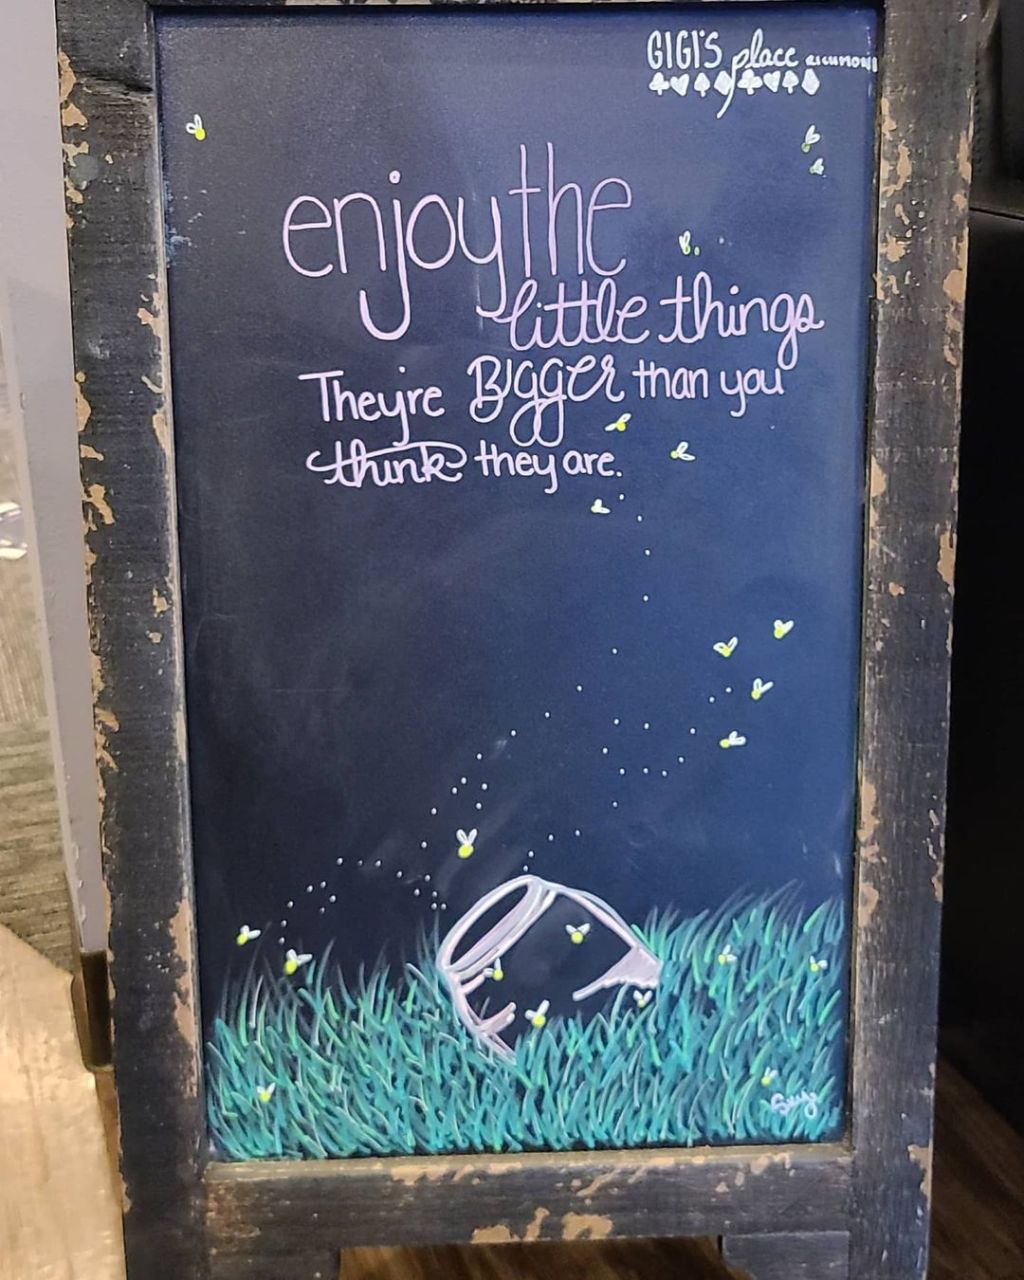 GIGI'S place RICHMOND
enjoy the
little things
They're BIGGER than you
think they are.
Suzi